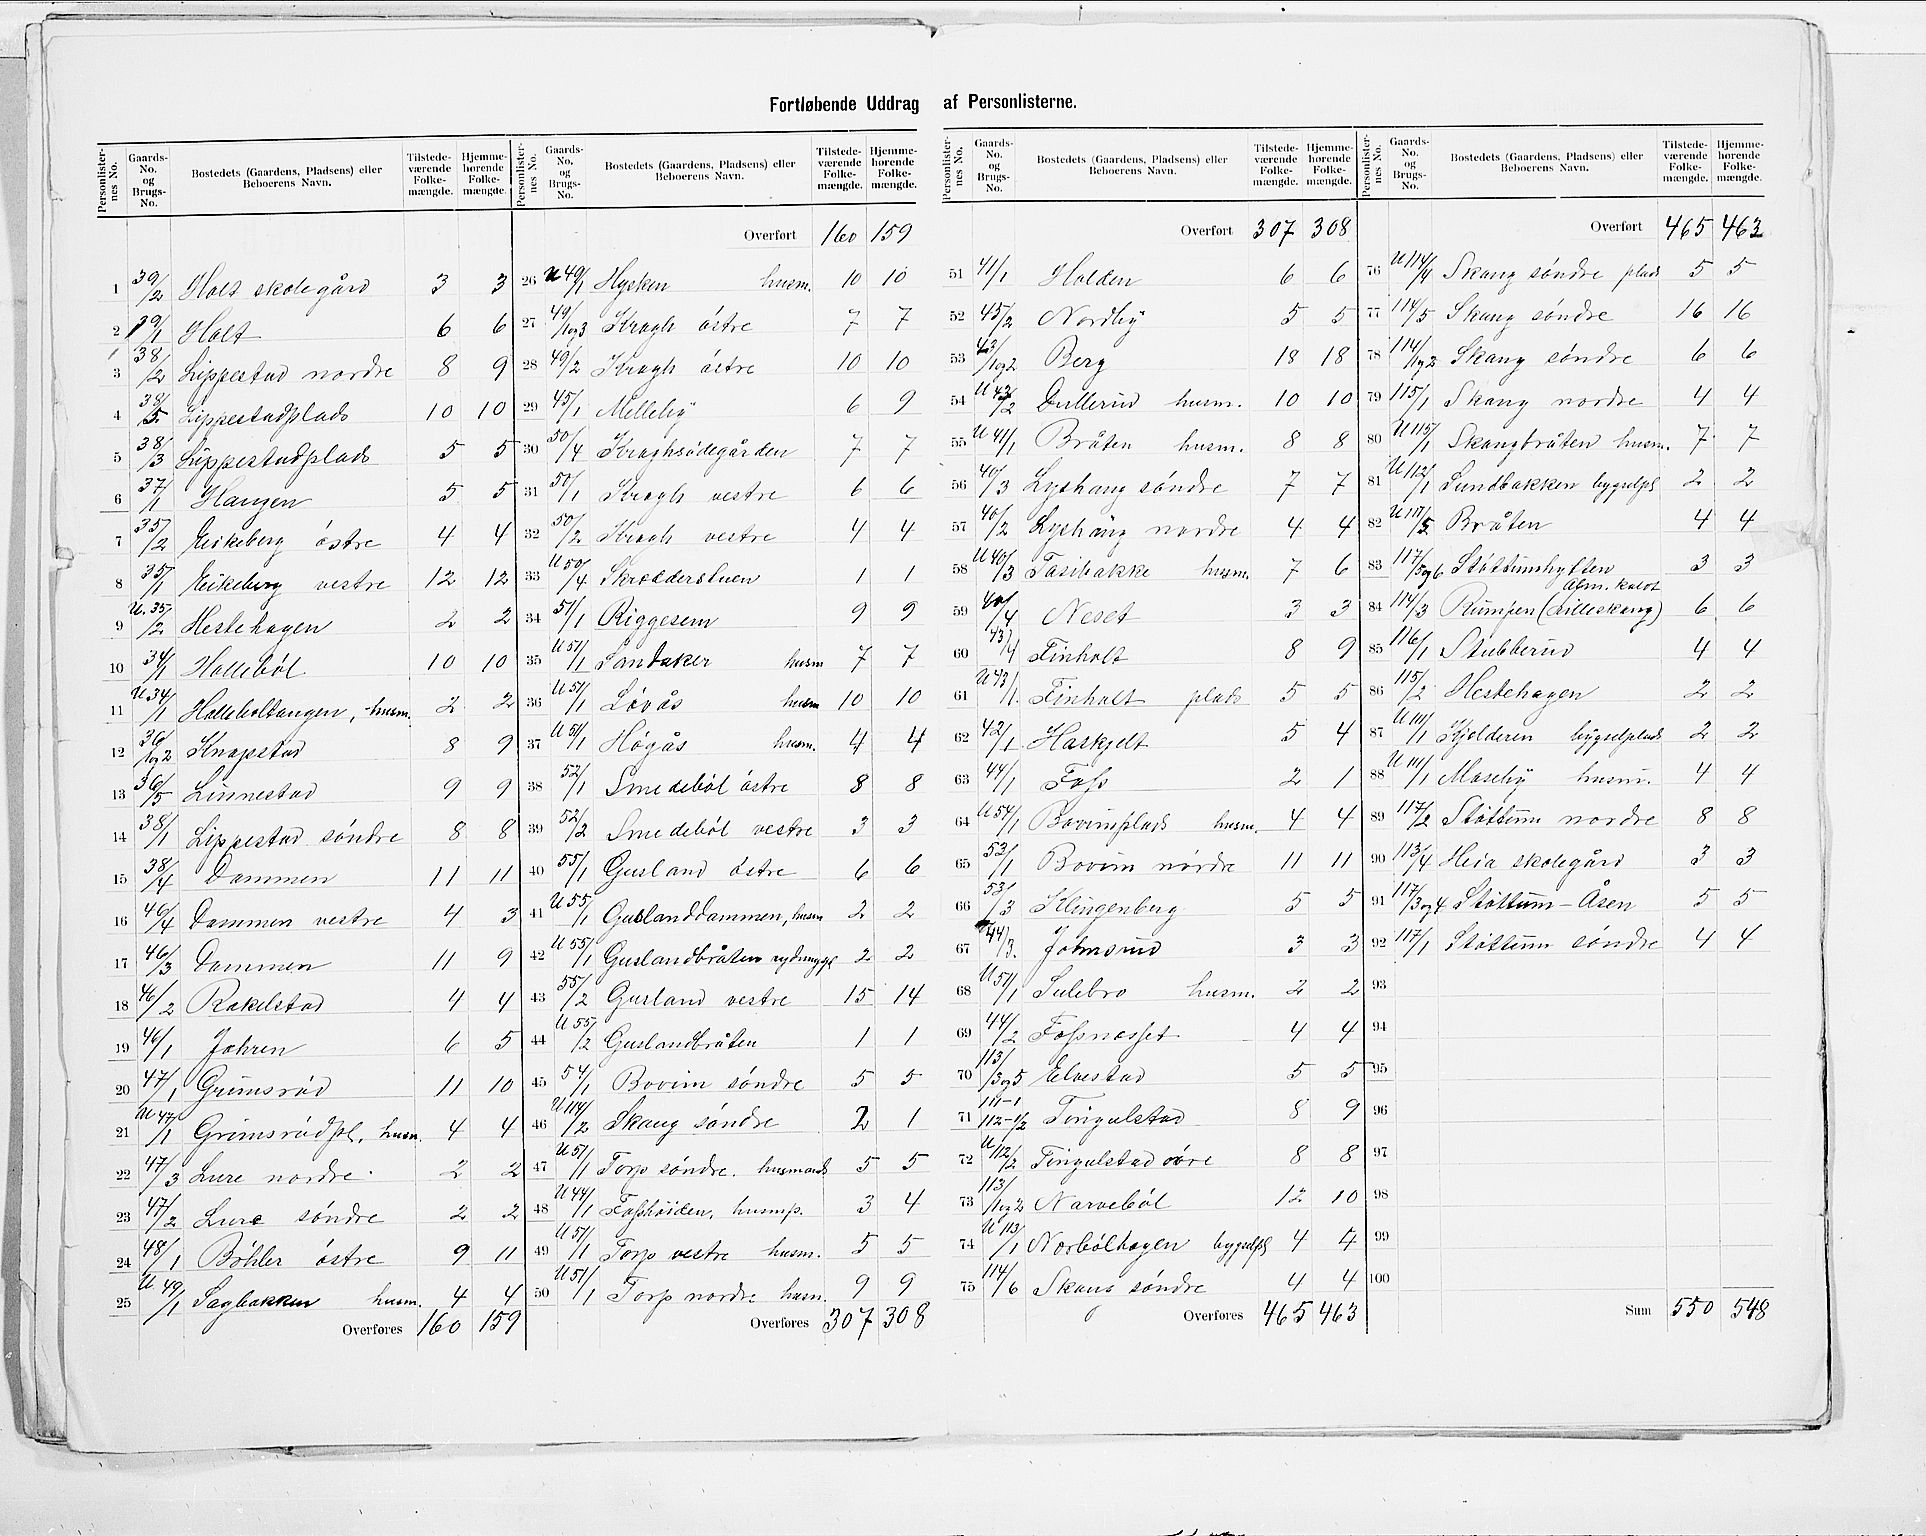 Fortløbende Uddrag af Personlisterne.
Personlisternes No. Gaards-No. og Brugs-No. Bostedets (Gaardens, Pladsens) eller Beboerens Navn. Tilstedeværende Folkemængde. Hjemmehørende Folkemængde.
1 39/2 Holt skolegård 3 3
2 39/1 Holt 6 6
3 38/2 Lippestad nordre 8 9
4 38/5 Lippestadplads 10 10
5 38/3 Lippestadplads 5 5
6 37/1 Haugen 5 5
7 35/2 Eikeberg östre 4 4
8 35/1 Eikeberg vestre 12 12
9 U. 35/2 Hestehagen 2 2
10 34/1 Hallebøl 10 10
11 U 34/1 Halleboltangen, husm. 2 2
12 36/1og2 Knapstad 8 9
13 36/5 Linnestad 9 9
14 38/1 Lippestad søndre 8 8
15 38/4 Dammen 11 11
16 46/4 Dammen vestre 4 3
17 46/3 Dammen 11 9
18 46/2 Rakelstad 4 4
19 46/1 Jahren 6 5
20 47/1 Grimsrød 11 10
21 U 47/1 Grimsrødpl. husm. 4 4
22 47/3 Lure nordre 2 2
23 47/2 Lure søndre 2 2
24 48/1 Böhler östre 9 11
25 U 49/1 Sagbakken husm. 4 4
Overføres 160 159
Personlisternes No. Gaards-No. og Brugs-No. Bostedets (Gaardens, Pladsens) eller Beboerens Navn. Tilstedeværende Folkemængde. Hjemmehørende Folkemængde.
Overført 160 159
26 U 49/1 Hysken husm. 10 10
27 49/1og3 Kragh östre 7 7
28 49/2 Kragh östre 10 10
29 45/1 Melleby 6 9
30 50/4 Kraghsödegården 7 7
31 50/1 Kragh vestre 6 6
32 50/2 Kragh vestre 4 4
33 U 50/4 Skrædderstuen 1 1
34 51/1 Riggesem 9 9
35 U 51/1 Sandaker husm 7 7
36 U 51/1 Løvås husm 10 10
37 U 51/1 Högås husm. 4 4
38 52/1 Smedeböl östre 8 8
39 52/2 Smedeböl vestre 3 3
40 55/1 Gusland östre 6 6
41 U 55/1 Guslanddammen, husm 2 2
42 U 55/1 Guslandbråten 2 2
43 55/2 Gusland vestre 15 14
44 U 55/2 Guslandbråten 1 1
45 54/1 Bovim söndre 5 5
46 U 114/2 Skaug søndre 2 1
47 U 51/1 Torp søndre. husmands 5 5
48 U 44/1 Fosshöiden, husmp. 3 4
49 U 51/1 Torp vestre husm. 5 5
50 U 51/1 Torp nordre husm. 9 9
Overføres 307 308
Personlisternes No. Gaards-No. og Brugs-No. Bostedets (Gaardens, Pladsens) eller Beboerens Navn. Tilstedeværende Folkemængde. Hjemmehørende Folkemængde.
Overført 307 308
51 41/1 Holden 6 6
52 45/2 Nordby 5 5
53 43/1og2 Berg 18 18
54 U 43/2 Dullerud husm. 10 10
55 U 41/1 Bråten husm. 8 8
56 40/3 Lyshaug söndre 7 7
57 40/2 Lyshaug nordre 4 4
58 U 40/3 Tasibakke husm. 7 6
59 40/4 Neset 3 3
60 43/1 Finholt 8 9
61 U 43/1 Finholt plads 5 5
62 42/1 Haskjelt 5 4
63 44/1 Foss 2 1
64 U 54/1 Bovimplads husm. 4 4
65 53/1 Bovim nordre 11 11
66 53/3 Klingenberg 5 5
67 44/3. Johnsrud 3 3
68 U 51/1 Sulebro husm. 2 2
69 44/2 Fossnesset 4 4
70 113/3og5 Elvestad 5 5
71 111-1 112-1/2 Tingulstad 8 9
72 U 112/2 Tingulstad övre 8 8
73 113/1og2 Narveböl 12 10
74 U 113/1 Norbölhagen bygselpl 4 4
75 114/6 Skaug søndre 4 4
Overføres 465 463
Personlisternes No. Gaards-No. og Brugs-No. Bostedets (Gaardens, Pladsens) eller Beboerens Navn. Tilstedeværende Folkemængde. Hjemmehørende Folkemængde.
Overført 465 463
76 U 114/4 Skaug söndre plads 5 5
77 114/5 Skaug söndre 16 16
78 114/1og2 Skaug söndre 6 6
79 115/1 Skaug nordre 4 4
80 U 115/1 Skaugbråten husm. 7 7
81 U 112/1 Lundbakken bygselpl 2 2
82 U 117/5 Bråten 4 4
83 117/5og6 Støttumhytten 3 3
84 114/3 Rumpen (Lilleskaug) alm. kaldt 6 6
85 116/1 Stubberud 4 4
86 115/2 Hestehagen 2 2
87 U 111/1 Kjølderen bygselplads 2 2
88 U 111/1 Maseby husm. 4 4
89 117/2 Støttum nordre 8 8
90 113/4 Heia skolegård 3 3
91 117/3og4 Støttum-Åsen 5 5
92 117/1 Støttum søndre 4 4
93
94
95
96
97
98
99
100
Sum 550 548